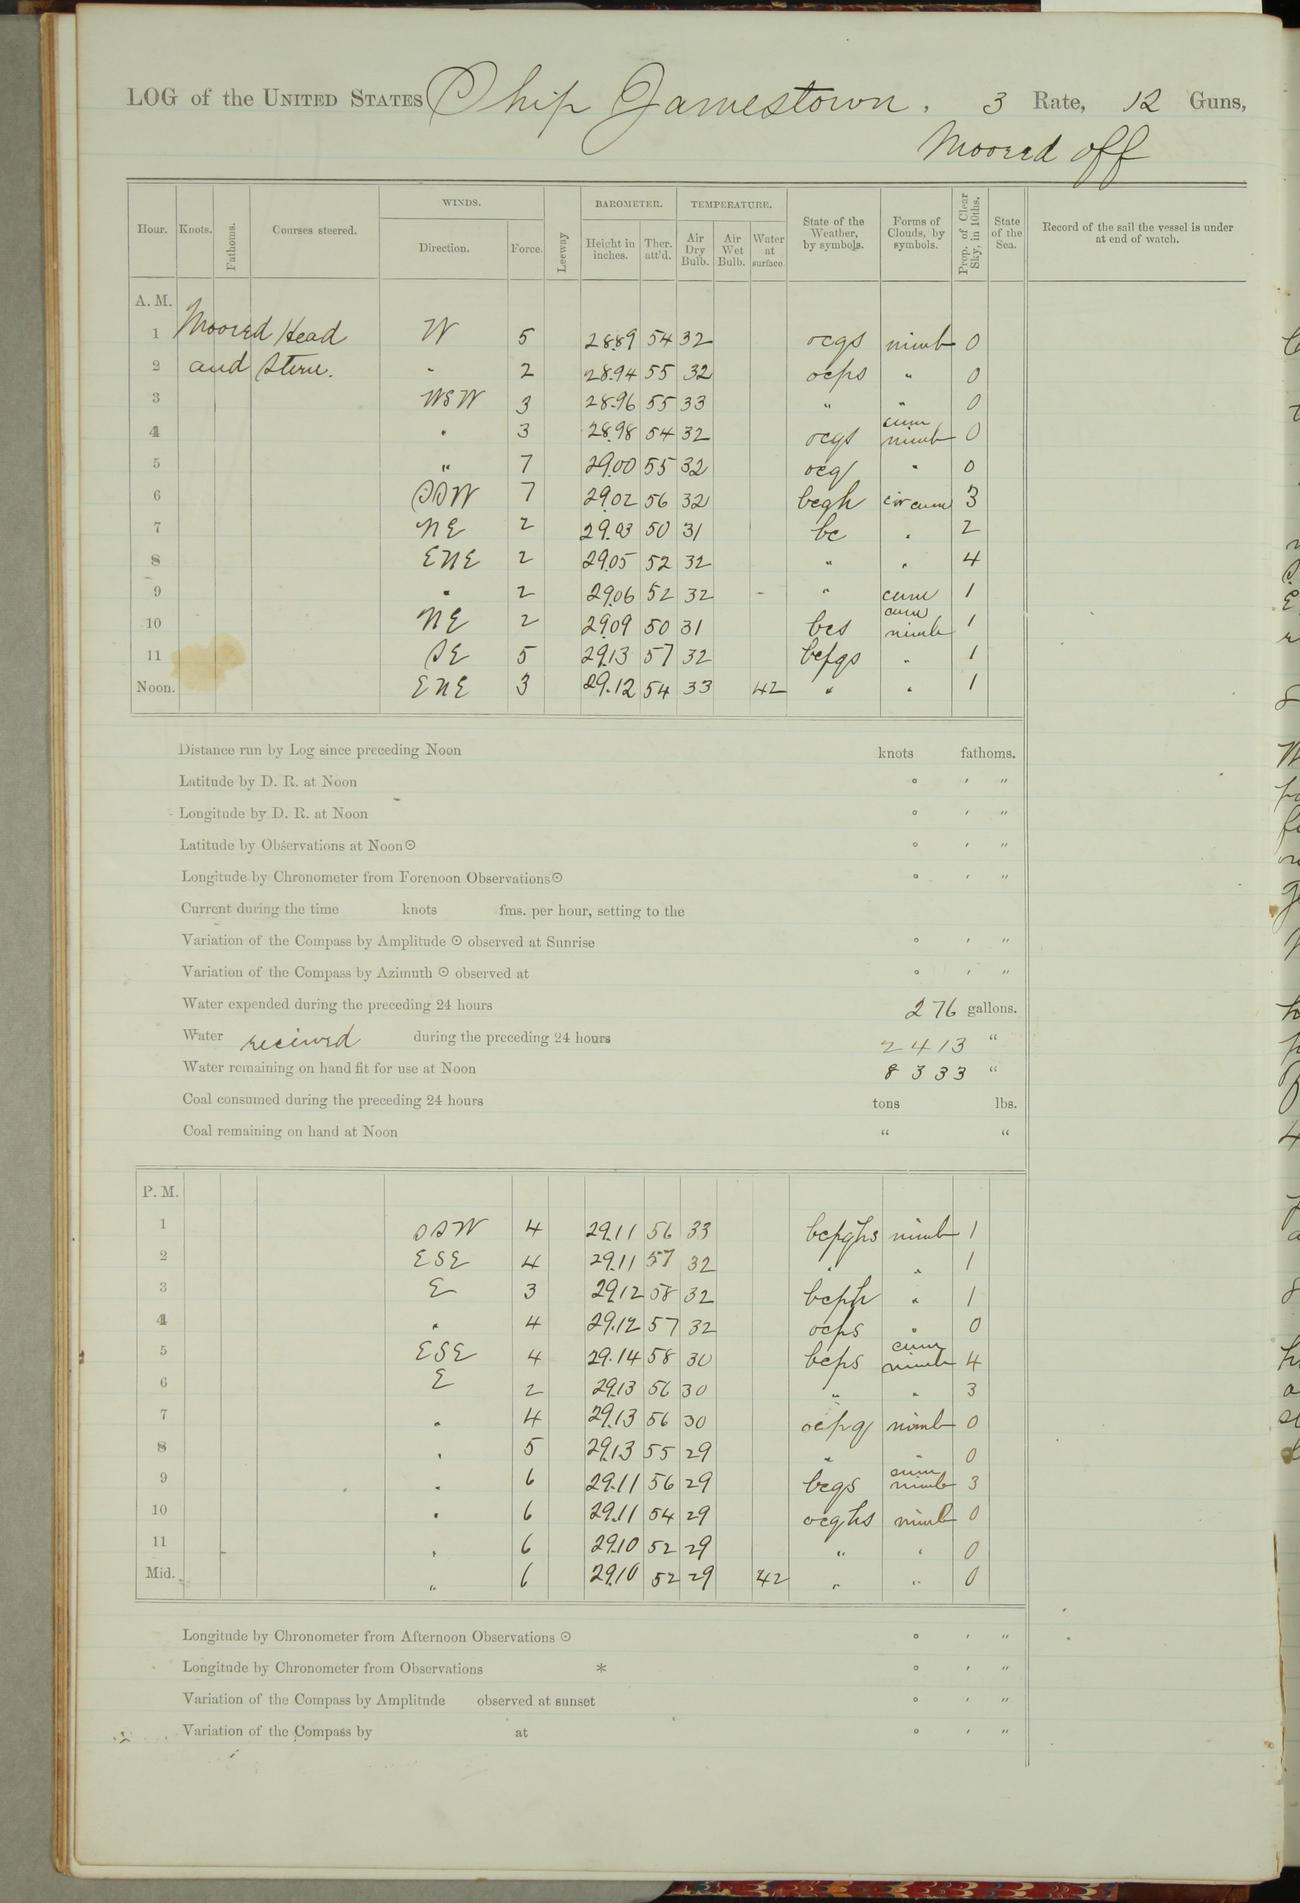 LOG of the UNITED STATES Ship Jamestown, 3 Rate, 12 Guns,
Moored off
WINDS. BAROMETER. TEMPERATURE.
Hour. Knots. Fathoms. Courses steered. Direction. Force. Leeway Height in inches. Ther. att'd. Air Dry Bulb. Air Wet Bulb. Water at surface. State of the Weather, by symbols. Forms of Clouds, by symbols. Prop. of Clear Sky, in 10ths. State of the Sea. Record of the sail the vessel is under at end of watch.
A. M.
1 Moored Head W 5 28.89 54 32 ocqs nimb 0
2 and Stern. " 2 28.94 55 32 ocps " 0
3 WSW 3 28.96 55 33 " " 0
4 " 3 28.98 54 32 ocqs cum nimb 0
5 " 7 29.00 55 32 ocq " 0
6 SSW 7 29.02 56 32 bcqh cir cum 3
7 NE 2 29.03 50 31 bc " 2
8 ENE 2 29.05 52 32 " " 4
9 " 2 29.06 52 32 - " cum 1
10 NE 2 29.09 50 31 bcs cum nimb 1
11 SE 5 29.13 57 32 bcpqs " 1
Noon. ENE 3 29.12 54 33 42 " " 1
Distance run by Log since preceding Noon knots fathoms.
Latitude by D. R. at Noon ° ′ ″
Longitude by D. R. at Noon ° ′ ″
Latitude by Observations at Noon ☉ ° ′ ″
Longitude by Chronometer from Forenoon Observations ☉ ° ′ ″
Current during the time knots fms. per hour, setting to the
Variation of the Compass by Amplitude ☉ observed at Sunrise ° ′ ″
Variation of the Compass by Azimuth ☉ observed at ° ′ ″
Water expended during the preceding 24 hours 276 gallons.
Water recieved during the preceding 24 hours 2413 "
Water remaining on hand fit for use at Noon 8333 "
Coal consumed during the preceding 24 hours tons lbs.
Coal remaining on hand at Noon " "
P. M.
1 SSW 4 29.11 56 33 bcpqhs nimb 1
2 ESE 4 29.11 57 32 " " 1
3 E 3 29.12 58 32 bcph " 1
4 " 4 29.12 57 32 ocps " 0
5 ESE 4 29.14 58 30 bcps cum nimb 4
6 E 2 29.13 56 30 " " 3
7 " 4 29.13 56 30 ocpq nimb 0
8 " 5 29.13 55 29 " 0
9 " 6 29.11 56 29 bcqs cum nimb 3
10 " 6 29.11 54 29 ocqhs nimb 0
11 " 6 29.10 52 29 " " 0
Mid. " 6 29.10 52 29 42 " " 0
Longitude by Chronometer from Afternoon Observations ☉ ° ′ ″
Longitude by Chronometer from Observations * ° ′ ″
Variation of the Compass by Amplitude observed at sunset ° ′ ″
Variation of the Compass by at ° ′ ″